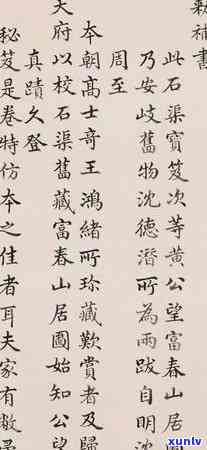 補書
此石渠寶笈次等黃公望富春山居圖
乃安歧舊物沈德潛所為兩跋自明沈
周至
本朝高士奇王鴻緒所珍藏歎賞者及歸
天府以校石渠舊藏富春山居圖始知公望
真蹟久登
秘笈是卷特仿本之佳者耳夫家有敝
xunlv